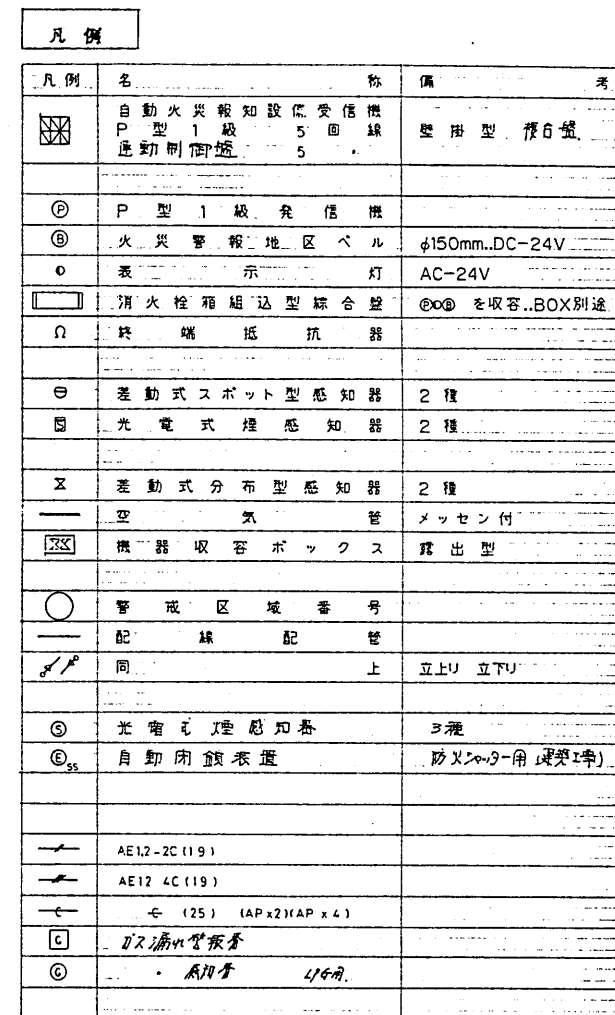 凡例
凡例 名称 備考
自動火災報知設備受信機
P型1級 5回線 壁掛型 複合盤
連動制御盤 5 〃
Ⓟ P型1級発信機
Ⓑ 火災警報地区ベル φ150mm..DC-24V
表示灯 AC-24V
消火栓箱組込型綜合盤 ⓅⒷ を収容..BOX別途
Ω 終端抵抗器
差動式スポット型感知器 2種
S 光電式煙感知器 2種
差動式分布型感知器 2種
空気管 メッセン付
機器収容ボックス 露出型
警戒区域番号
配線配管
同上 立上り 立下り
Ⓢ 光電式煙感知器 3種
ⒺSS 自動閉鎖装置 防火シャッター用(建築工事)
AE1.2-2C(19)
AE12 4C(19)
C C (25) (APx2)(APx4)
G ガス漏れ警報
Ⓖ 〃